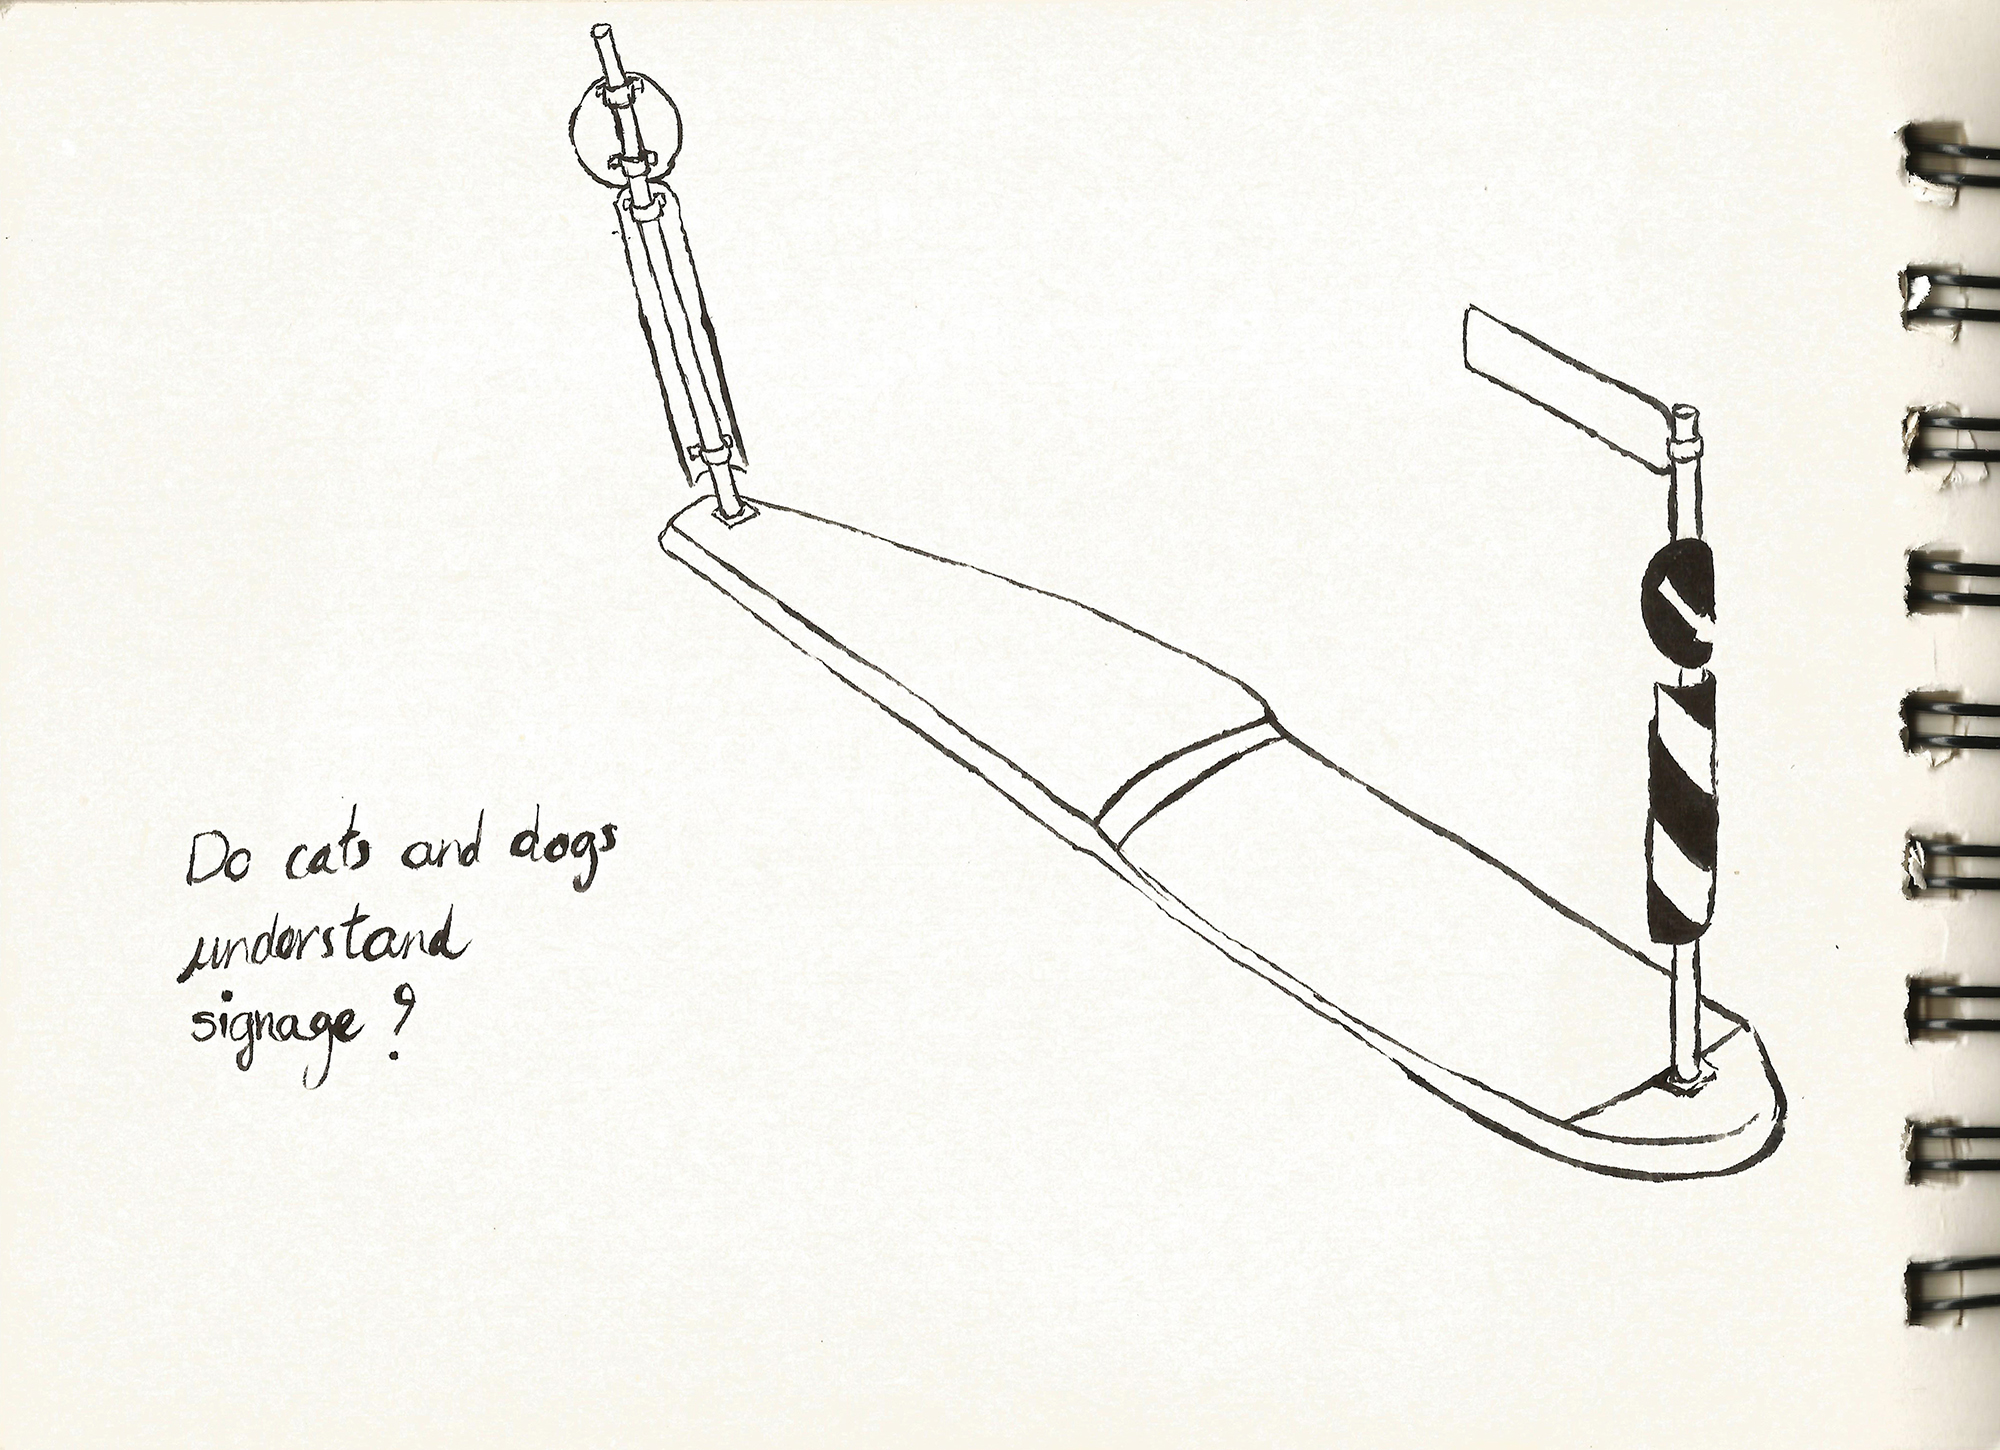 Do cats and dogs
understand
signage?